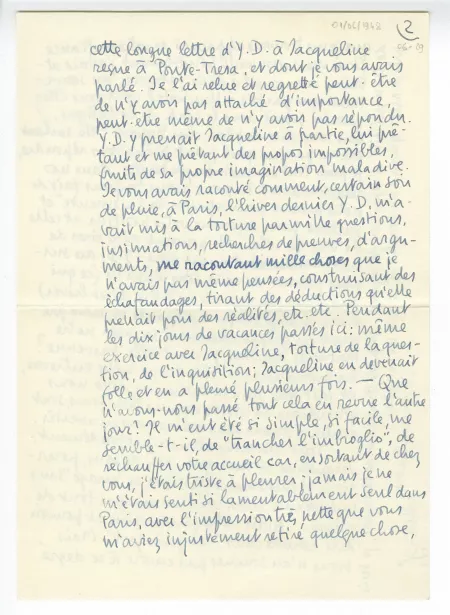 01/06/1948
2
cette longue lettre d'Y.D. à Jacqueline
reçue à Ponte-Tresa, et dont je vous avais
parlé. Je l'ai relue et regretté peut-être
de n'y avoir pas attaché d'importance,
peut-être même de n'y avoir pas répondu.
Y.D. y prenait Jacqueline à partie, lui prê-
tant et me prêtant des propos impossibles,
fruits de sa propre imagination maladive.
Je vous avais raconté comment, certain soir
de pluie, à Paris, l'hiver dernier Y.D. m'a-
vait mis à la torture par mille questions,
insinuations, recherches de preuves, d'argu-
ments, me racontant mille choses que je
n'avais pas même pensées, construisant des
échafaudages, tirant des déductions qu'elle
prenait pour des réalités, etc. etc. Pendant
les dix jours de vacances passés ici: même
exercice avec Jacqueline, torture de la ques-
tion, de l'inquisition; Jacqueline en devenait
folle et en a pleuré plusieurs fois. — Que
n'avons-nous passé tout cela en revue l'autre
jour! Il m'eut été si simple, si facile, me
semble-t-il, de "trancher l'imbroglio", de
réchauffer votre accueil car, en sortant de chez
vous, j'étais triste à pleurer; jamais je ne
m'étais senti si lamentablement seul dans
Paris, avec l'impression très nette que vous
m'aviez injustement retiré quelque chose,